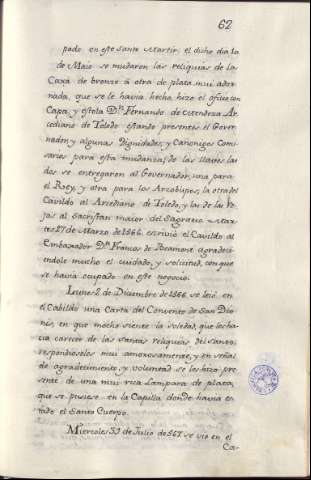 62
pado en este Santo Martir; el dicho dia 10
de Maio se mudaron las reliquias de la
Caxa de bronze á otra de plata mui ador-
nada, que se le havia hecha, hizo el oficio con
Capa, y estola Dn. Fernando de Mendoza Ar-
cediano de Toledo estando presentes el Gover-
nador, y algunas Dignidades, y Canonigos Comi-
sarios para esta mudanza; de las llaves las
dos se entregaron al Governador, una para
el Rey, y otra para los Arzobispos, la otra del
Cavildo al Arcediano de Toledo, y las de las Re-
jas al Sacristan maior del Sagrario. Mar-
tes 27 de Marzo de 1566. escrivió el Cavildo al
Embaxador Dn. Frances de Beamont agradeci-
endole mucho el cuidado, y solicitud, con que
se havia ocupado en este negocio.
Lunes 2 de Diciembre de 1566 se leió en
el Cabildo una Carta del Convento de San Dio-
nis, en que mucho siente la soledad, que les ha-
cia carecer de las santas reliquias del santo:
respondioseles mui amorosamente, y en señal
de agradecimiento, y voluntad se les hizo pre-
sente de una mui rica Lampara de plata,
que se pusiese en la Capilla donde havia es-
tado el Santo Cuerpo.
Miercoles 31 de Julio de 567 se vio en el
Ca-